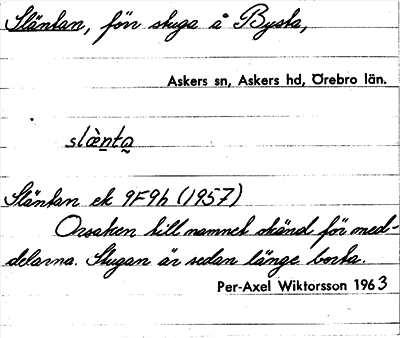 Släntan, förr stuga å Bysta,
Askers sn, Askers hd, Örebro län.
slæ̀nta
Släntan ek 9F9h (1957)
Orsaken till namnet okänd för med-
delarna. Stugan är sedan länge borta.
Per-Axel Wiktorsson 1963